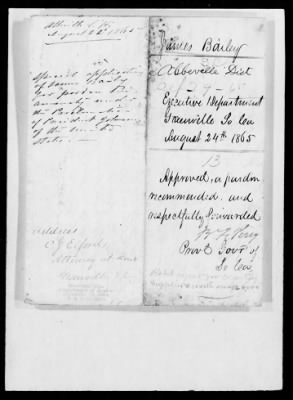 Abbeville S. C.
August 22d 1865
Special application
of James Baily
for pardon
under
the Proclamation
of President Johnson
of the United
States.
Address
C J Elford
Attorney at Law
Greenville S C
James Bailey
Abbeville Dist
Executive Department
Greenville So Ca
August 24th 1865
13
Approved, a pardon
recommended and
respectfully forwarded
B F Perry
Prov'l Gov'r of
So Ca